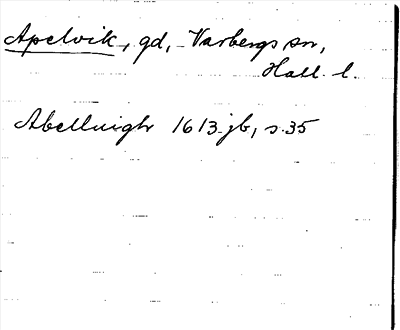 Apelvik, gd, Varbergs sn,
Hall. l.
Abelluigh 1613 jb, s. 35